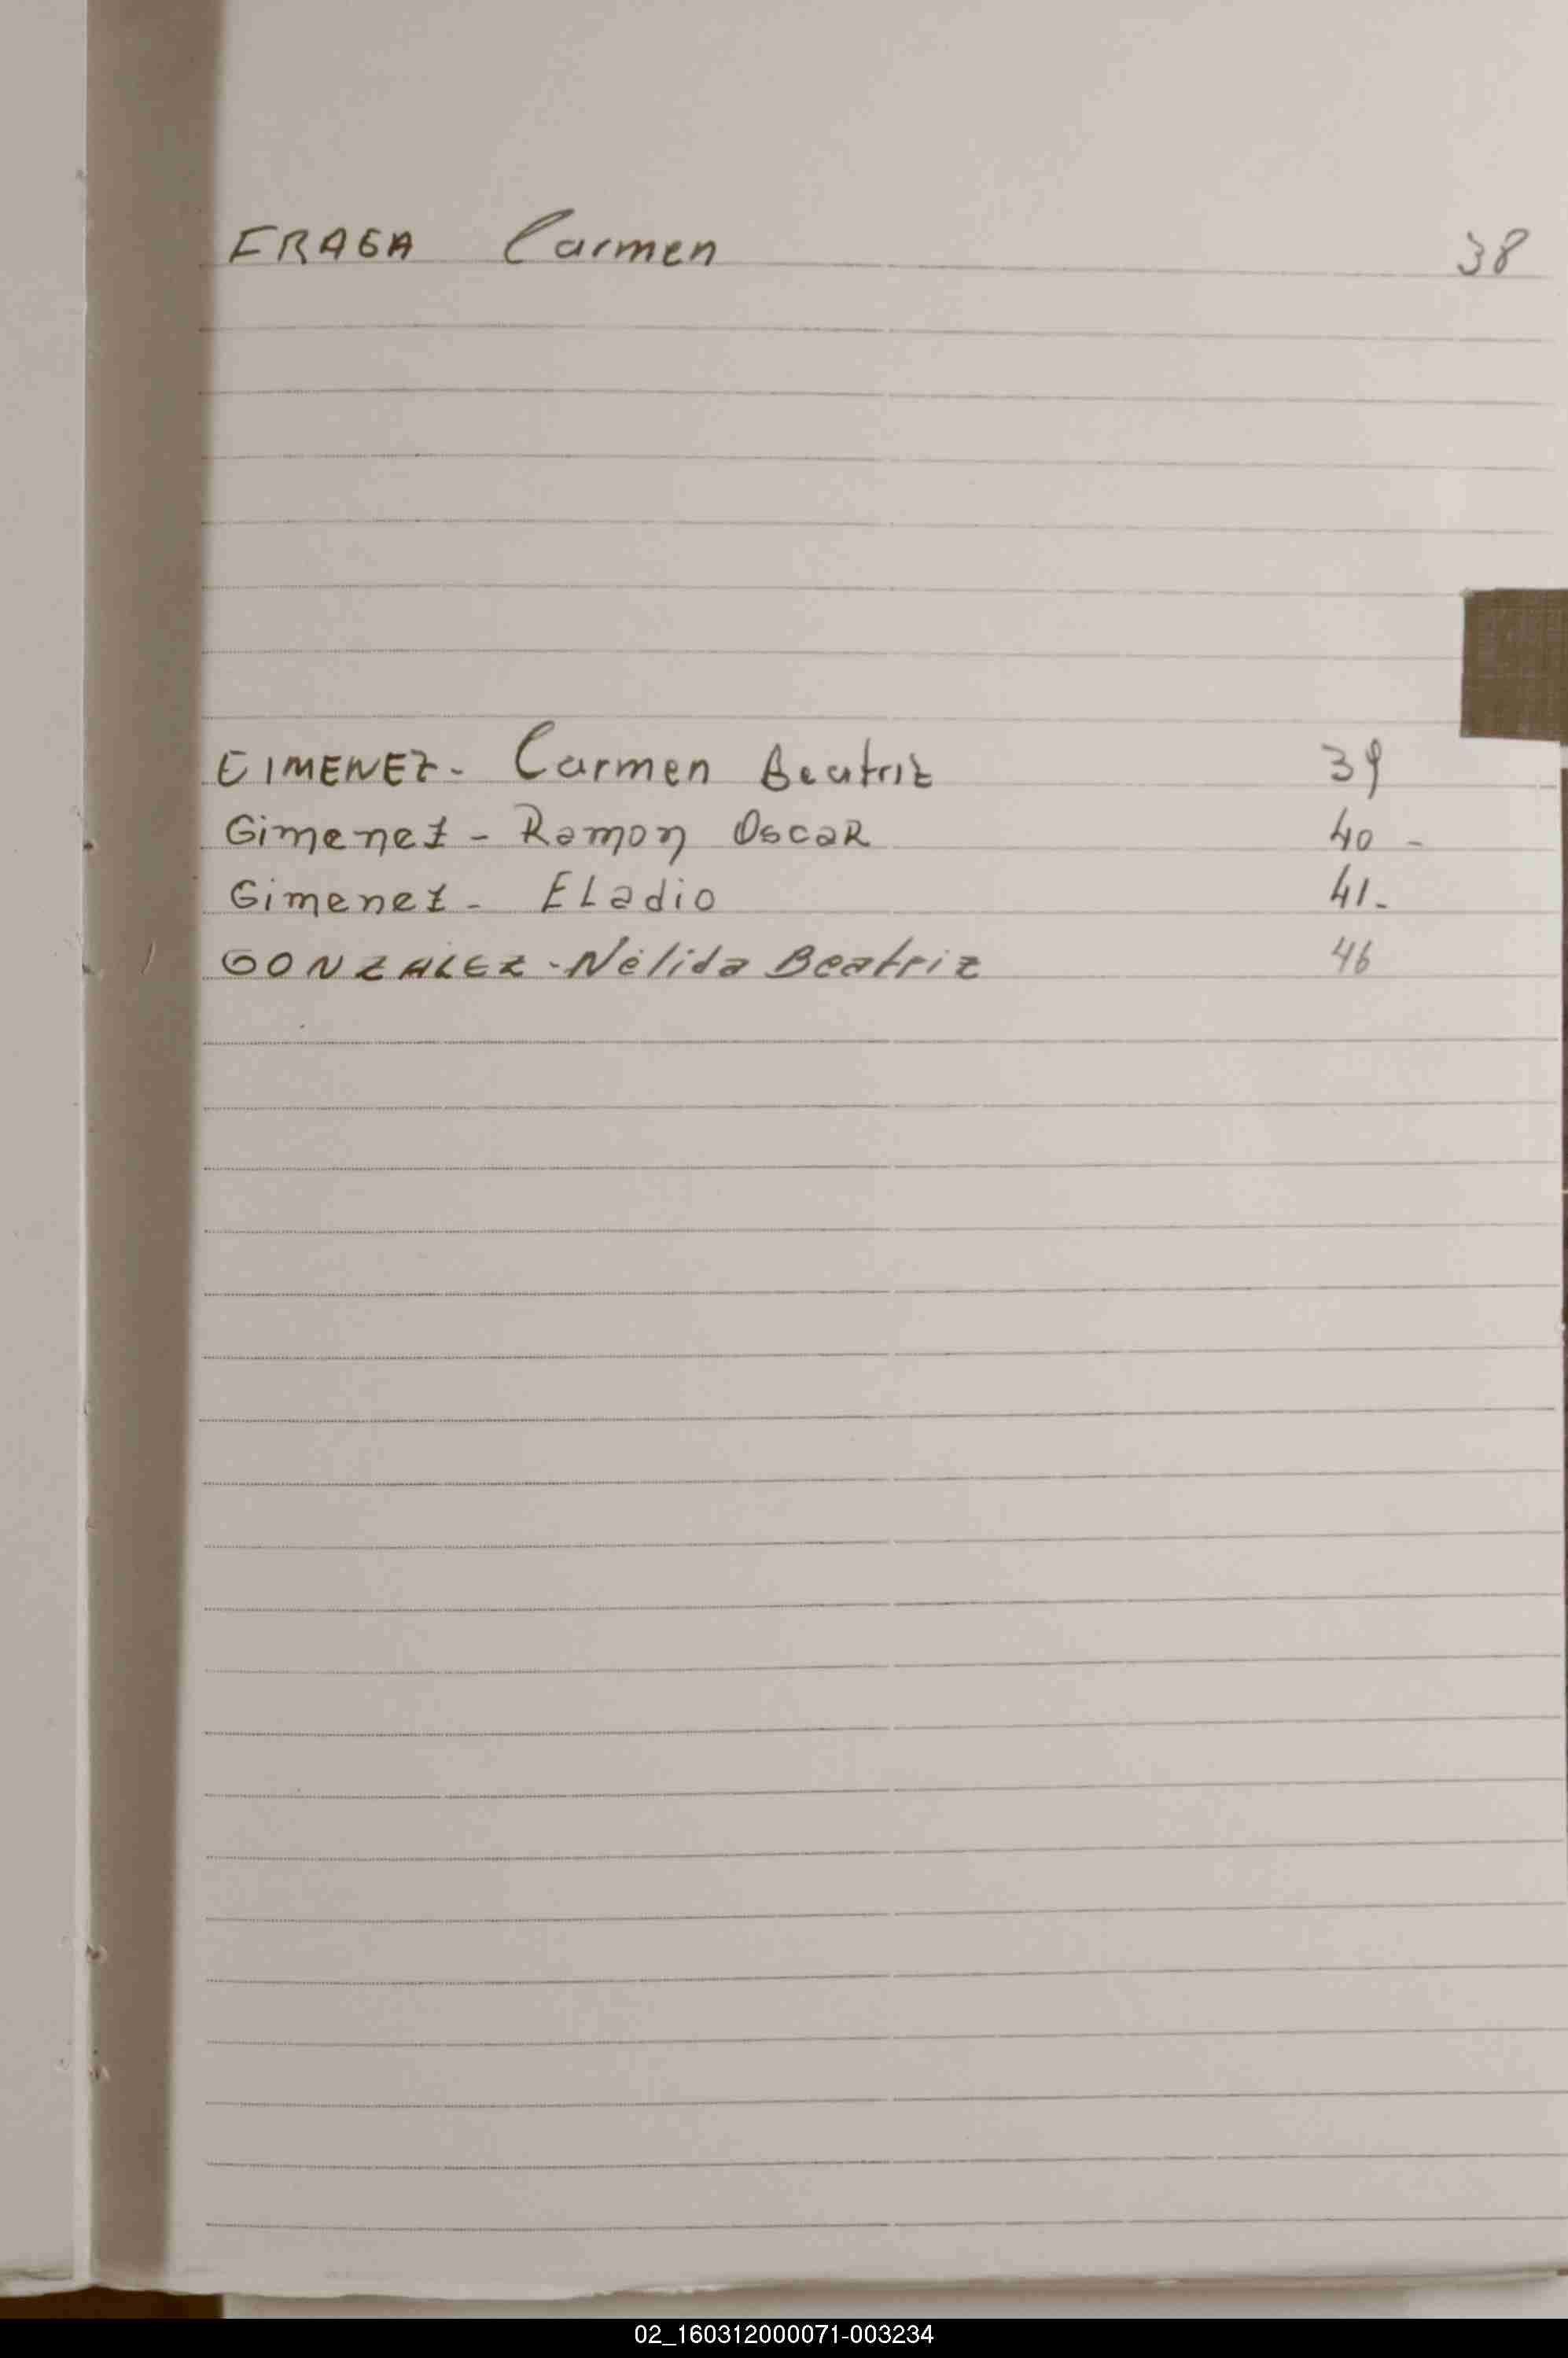 FRAGA Carmen 38
GIMENEZ - Carmen Beatriz 39
Gimenez - Ramon Oscar 40 -
Gimenez - ELadio 41.
GONZALEZ - Nélida Beatriz 46
02_160312000071-003234